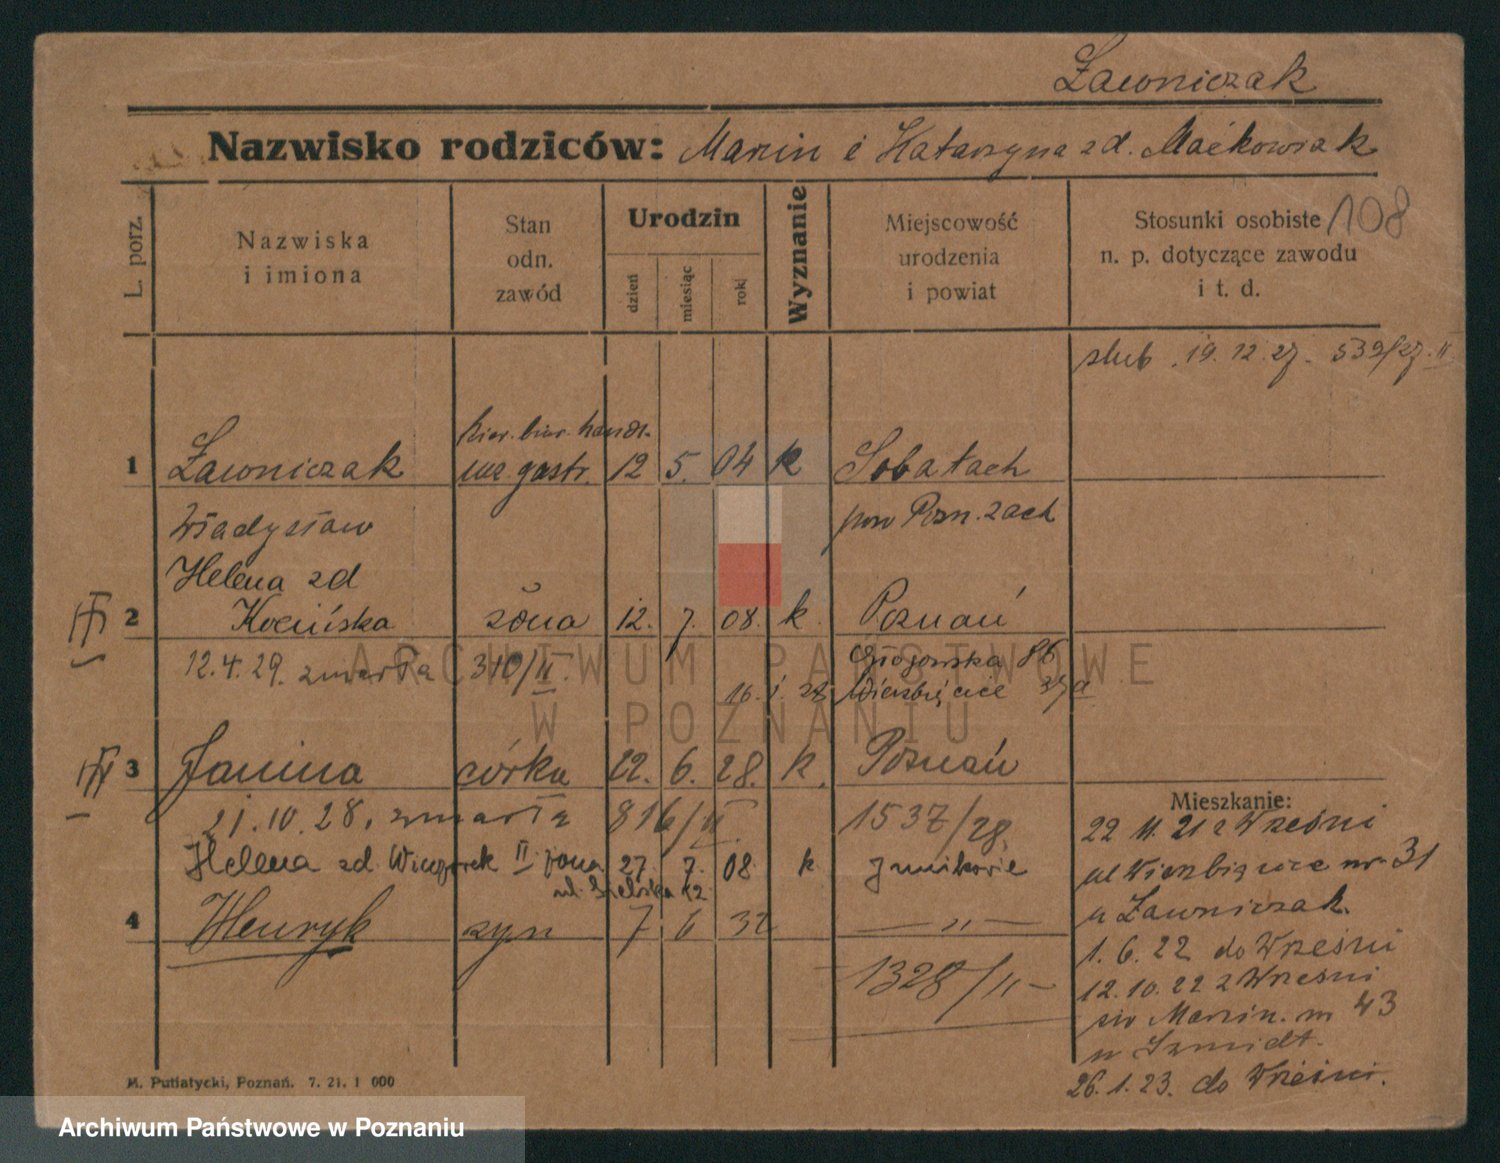 Ławniczak
Nazwisko rodziców: Marcin i Katarzyna zd. Maćkowiak
L. porz.
Nazwiska
i imiona
Stan
odn.
zawód
Urodzin
dzień
miesiąc
rok
Wyznanie
Miejscowość
urodzenia
i powiat
Stosunki osobiste
n. p. dotyczące zawodu
i t. d.
108
ślub 19. 12. 27. 539/27. II
1 Ławniczak gastr. 12 5. 04 k Sobatach
Władysław pow Pozn. zach
Helena zd
2 Kocińska żona 12. 7. 08. k. Poznań
12.4.29. zmarła 310/II. Głogowska 86
16. 1. Wierzbięcice 37a
3 Janina córka 22. 6. 28. k. Poznań
21.10.28. zmarła 816/II. 1537/28.
Helena zd. Wieczorek II żona 27. 7. 08. k. Junikowie
ul. 12
4 Henryk syn 7 6 32 — " —
1328/II —
Mieszkanie:
22 11. 21 z Wrześni
ul Wierzbięcice nr 31
u Ławniczak.
1. 6. 22 do Wrześni
12. 10. 22 z Wrześni
św Marcin. nr 43
u Szmidt.
26. 1. 23. do Wrześni.
M. Putiatycki, Poznań. 7. 21. 1 000
ARCHIWUM PAŃSTWOWE
W POZNANIU
Archiwum Państwowe w Poznaniu